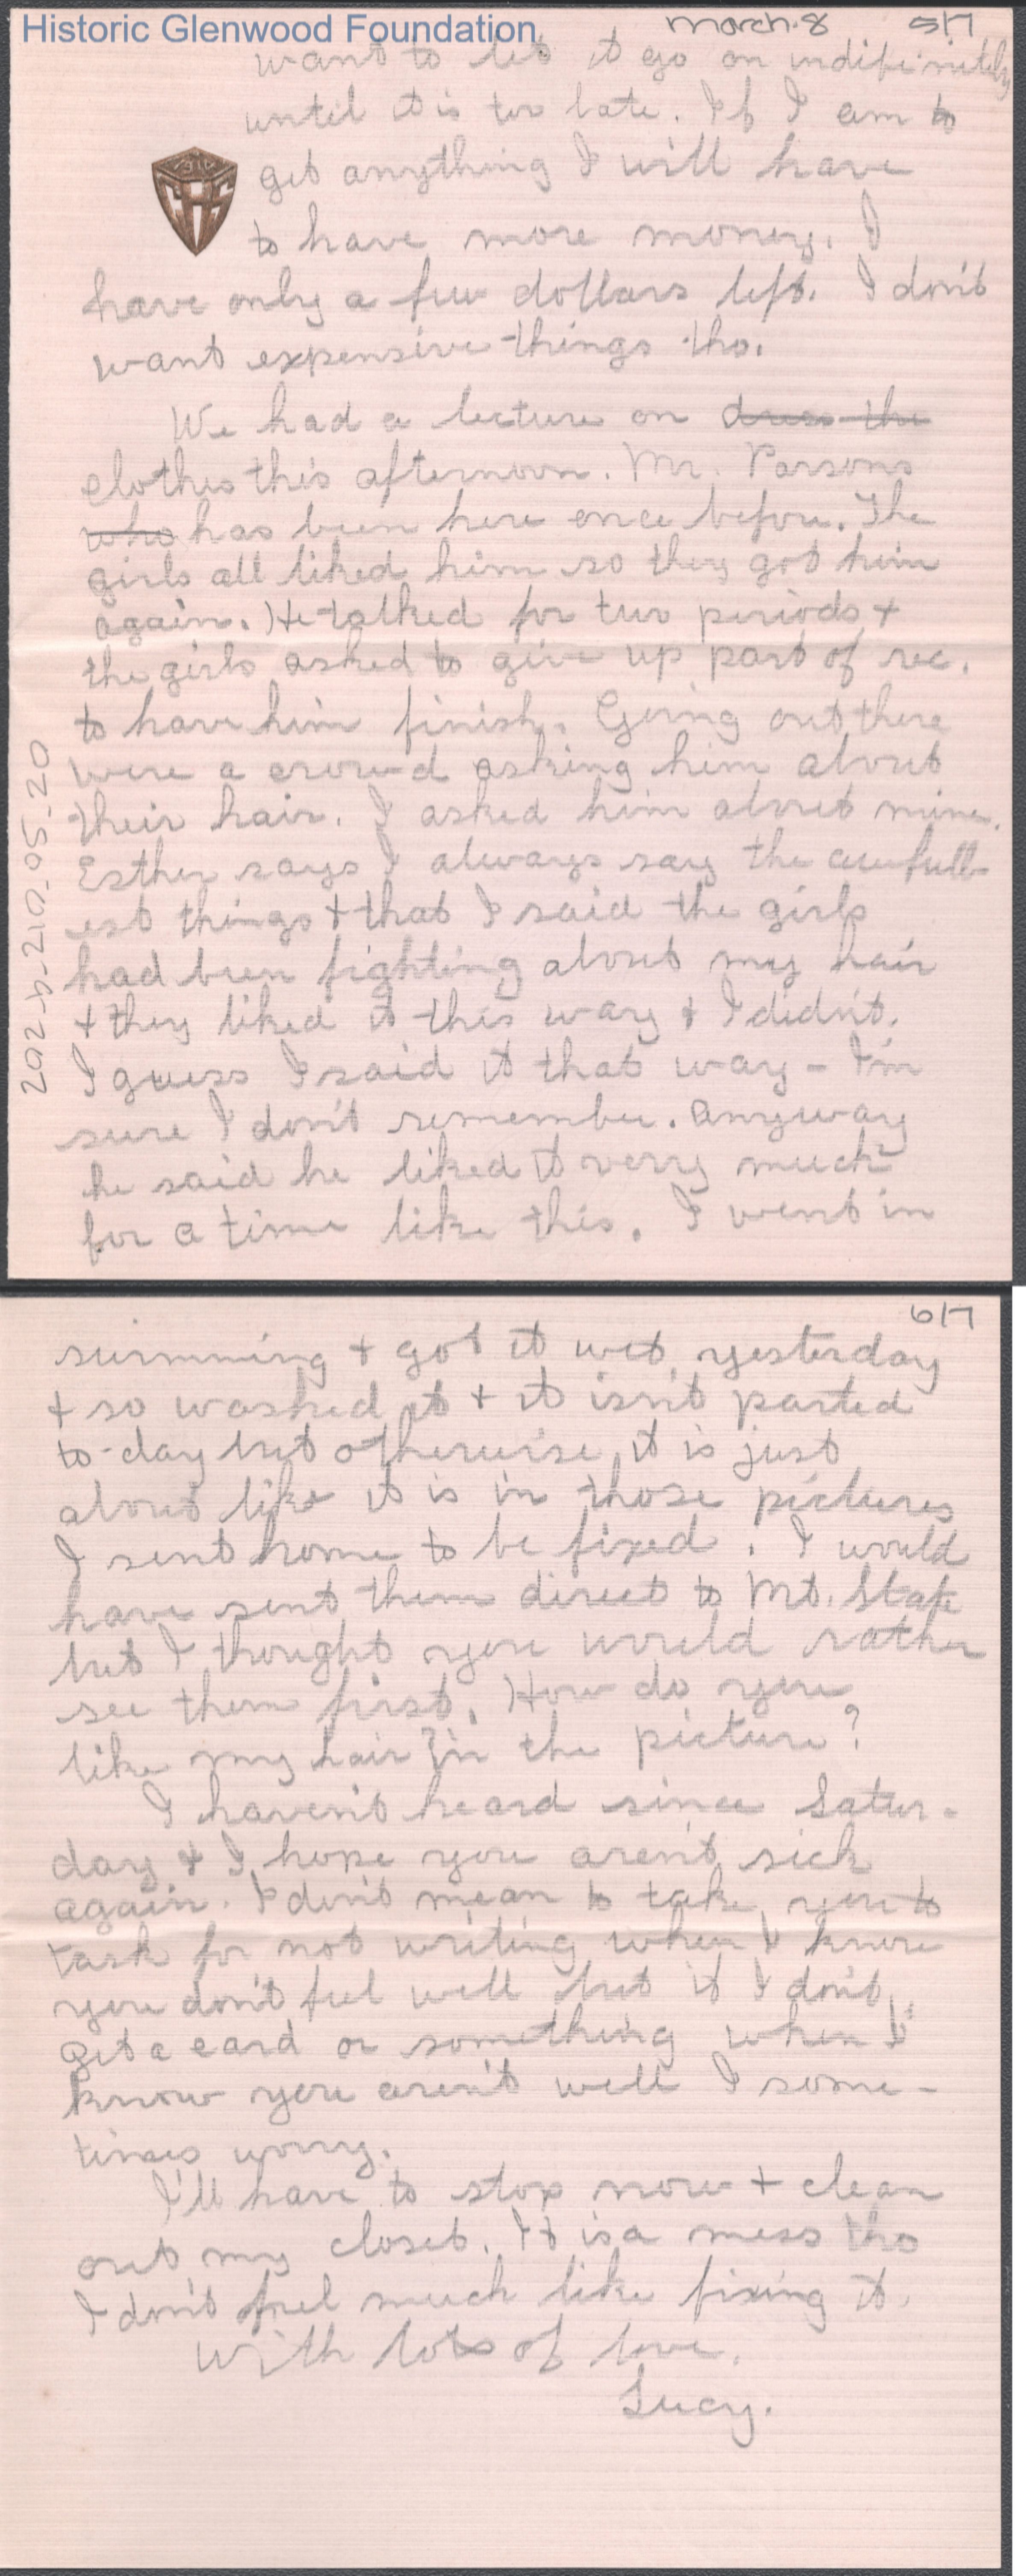 Historic Glenwood Foundation
march 8 5/7
want to let it go on indifinitely
until it is too late. If I am to
get anything I will have
to have more money. I
have only a few dollars left. I don't
want expensive things tho.
We had a lecture on dress the
clothes this afternoon. Mr. Parsons
who has been here once before. The
girls all liked him so they got him
again. He talked for two periods +
the girls asked to give up part of rec.
to have him finish. Going out there
were a crowd asking him about
their hair. I asked him about mine.
Esther says I always say the awfull-
est things + that I said the girls
had been fighting about my hair
+ they liked it this way + I didn't.
I guess I said it that way - I'm
sure I don't remember. Anyway
he said he liked it very much
for a time like this. I went in
202_b_210_05_20
6/7
swimming + got it wet yesterday
+ so washed it + it isn't parted
to-day but otherwise it is just
about like it is in those pictures
I sent home to be fixed. I would
have sent them direct to Mt. State
but I thought you would rather
see them first. How do you
like my hair in the picture?
I haven't heard since Satur-
day + I hope you aren't sick
again. I don't mean to take you to
task for not writing when I know
you don't feel well but if I don't
get a card or something when I
know you aren't well I some-
times worry.
I'll have to stop now + clean
out my closet. It is a mess tho
I don't feel much like fixing it.
With lots of love.
Lucy.